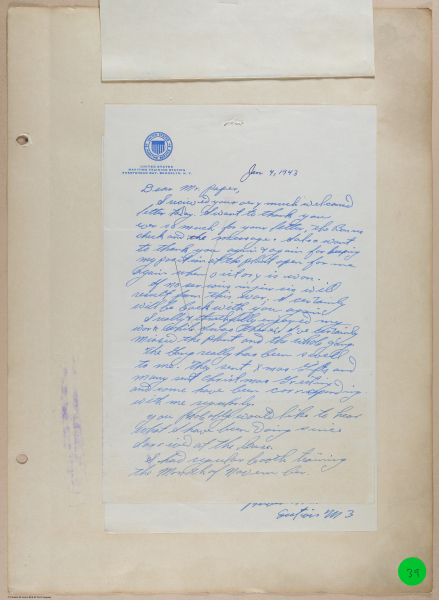 UNITED STATES
MARITIME TRAINING STATION
SHEEPSHEAD BAY, BROOKLYN, N. Y.
Jan 4, 1943
Dear Mr.
I received your very much welcomed
letter today. I want to thank you
ever so much for your letter, the Bonus
check and the message. I also want
to thank you again & again for keeping
my position at the plant open for me
again when victory is won.
If no serious injuries will
result from this War, I certainly
will be back with you again.
I really & truthfully enjoyed my
work while being there. I've certainly
missed the plant and the whole gang.
The Gang really has been swell
to me. They sent Xmas Gifts and
many sent Christmas Greetings
and some have been corresponding
with me regularly.
You probably would like to hear
what I have been doing since
I arrived at the Base.
I had regular booth training
the Month of November.
Section M 3
39